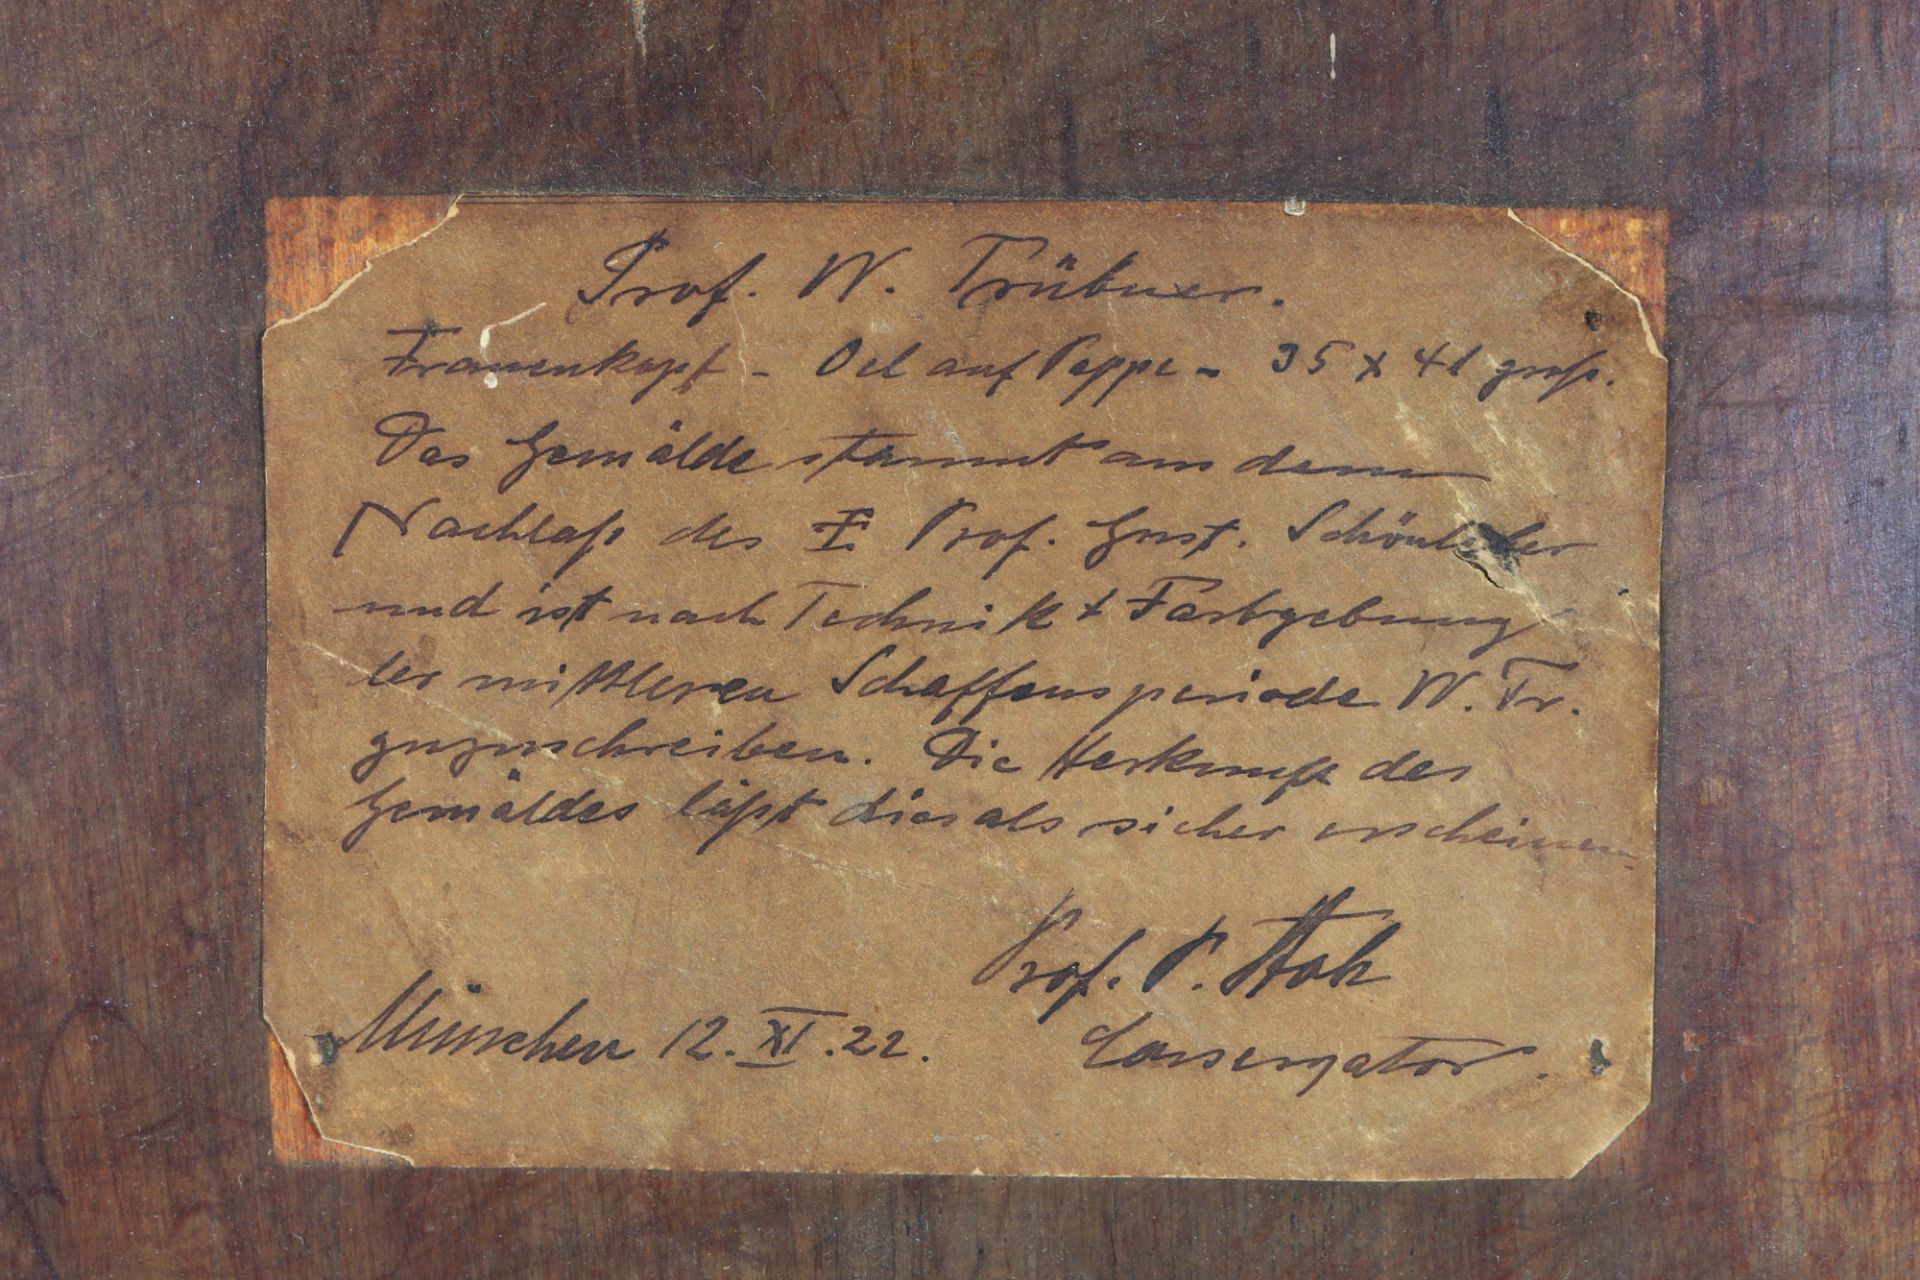 Prof. W. Trübner.
Frauenkopf - Oel auf Pappe - 35 x 41 groß.
Das Gemälde stammt aus dem
Nachlaß des Prof. Gust. Schönleber
und ist nach Technik + Farbgebung
der mittleren Schaffensperiode W. Tr.
zuzuschreiben. Die Herkunft des
Gemäldes läßt dies als sicher erscheinen.
Prof. P.
München 12. XI. 22.
Conservator.